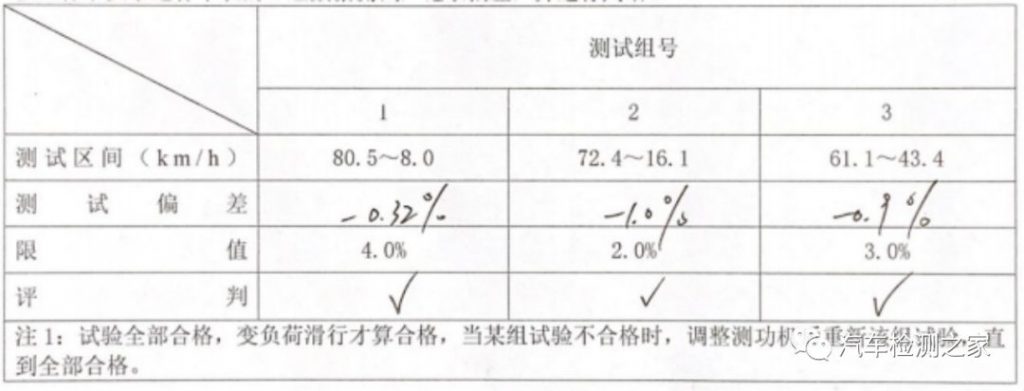 测试组号
1 2 3
测试区间（km/h） 80.5～8.0 72.4～16.1 61.1～43.4
测试偏差 -0.32% -1.0% -0.9%
限值 4.0% 2.0% 3.0%
评判 ✓ ✓ ✓
注 1：试验全部合格，变负荷滑行才算合格，当某组试验不合格时，调整测功机 重新 试验， 直
到全部合格。
汽车检测之家